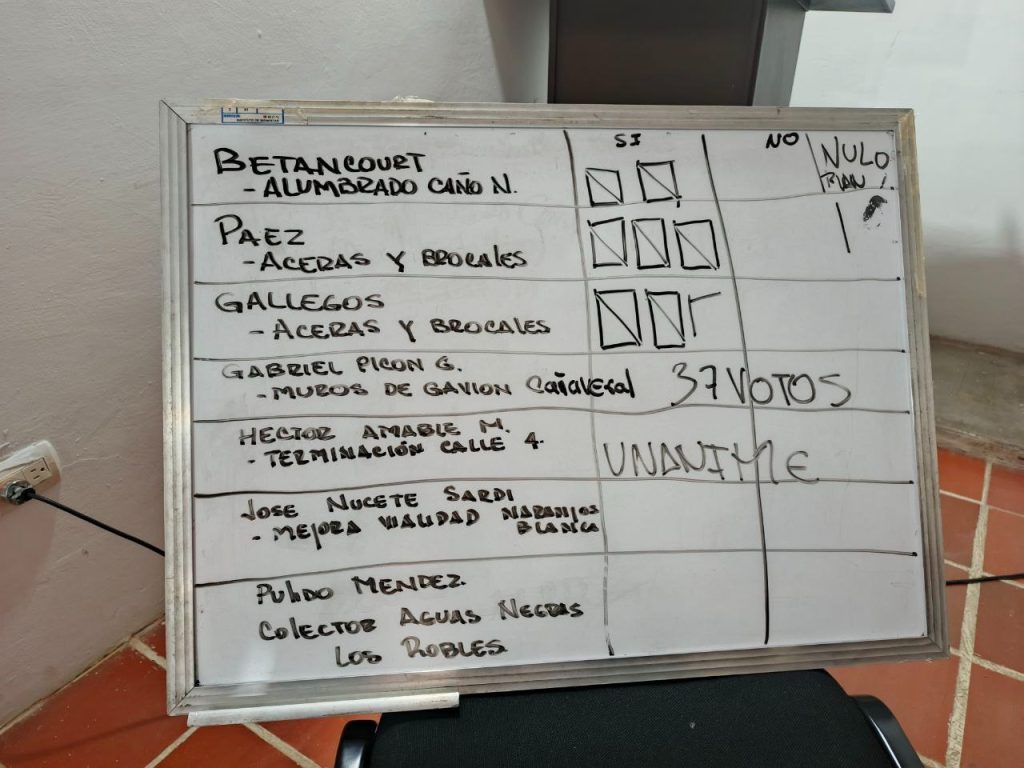 SI NO NULO
BETANCOURT
- ALUMBRADO CAÑO N.
PAEZ
- ACERAS Y BROCALES
GALLEGOS
- ACERAS Y BROCALES
GABRIEL PICON G.
- MUROS DE GAVION Cañaveral 37 VOTOS
HECTOR AMABLE M.
- TERMINACIÓN CALLE 4. UNANIME
JOSE NUCETE SARDI
- MEJORA VIALIDAD NARANJOS
BLANCA
PULIDO MENDEZ.
COLECTOR AGUAS NEGRAS
LOS ROBLES